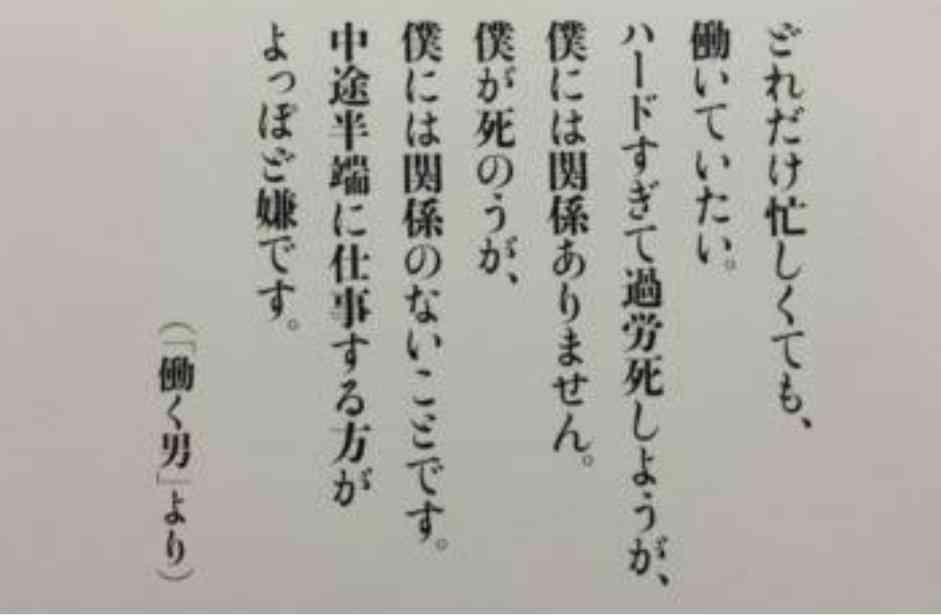 どれだけ忙しくても、
働いていたい。
ハードすぎて過労死しようが、
僕には関係ありません。
僕が死のうが、
僕には関係のないことです。
中途半端に仕事する方が
よっぽど嫌です。
（「働く男」より）